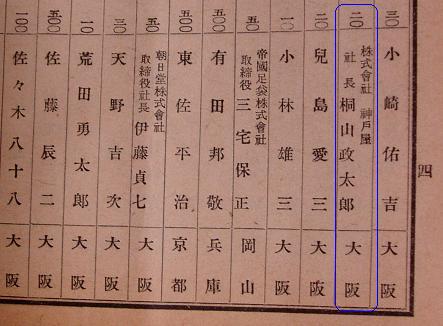 四
三〇 小崎佑吉 大阪
二〇 株式會社 神戸屋
社長 桐山政太郎 大阪
二〇 兒島愛三 大阪
一〇 小林雄三 大阪
五〇 帝國足袋株式會社
取締役 三宅保正 岡山
五〇〇 有田邦敬 兵庫
五〇〇 東佐平治 京都
五〇 朝日堂株式會社
取締役社長 伊藤貞七 大阪
三〇 天野吉次 大阪
一〇 荒田勇太郎 大阪
五〇〇 佐藤辰二 大阪
一〇〇 佐々木八十八 大阪